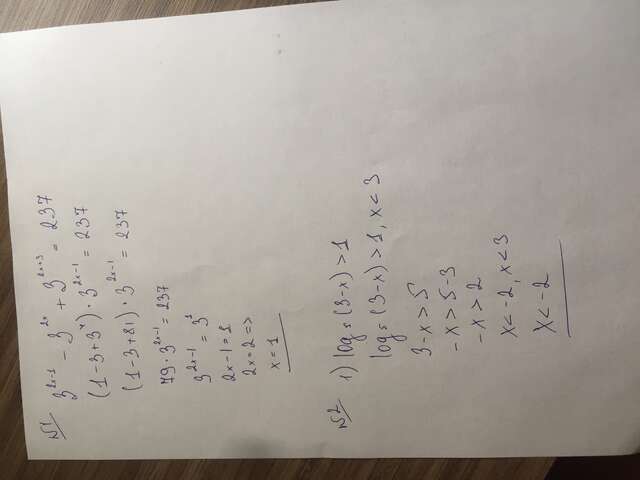 №1
3^{2x-1} - 3^{2x} + 3^{2x+3} = 237
(1-3+3^4) · 3^{2x-1} = 237
(1-3+81) · 3^{2x-1} = 237
79 · 3^{2x-1} = 237
3^{2x-1} = 3^1
2x-1 = 1
2x = 2 =>
x = 1
№2
1) log₅(3-x) > 1
log₅(3-x) > 1, x < 3
3-x > 5
-x > 5-3
-x > 2
x < -2, x < 3
x < -2